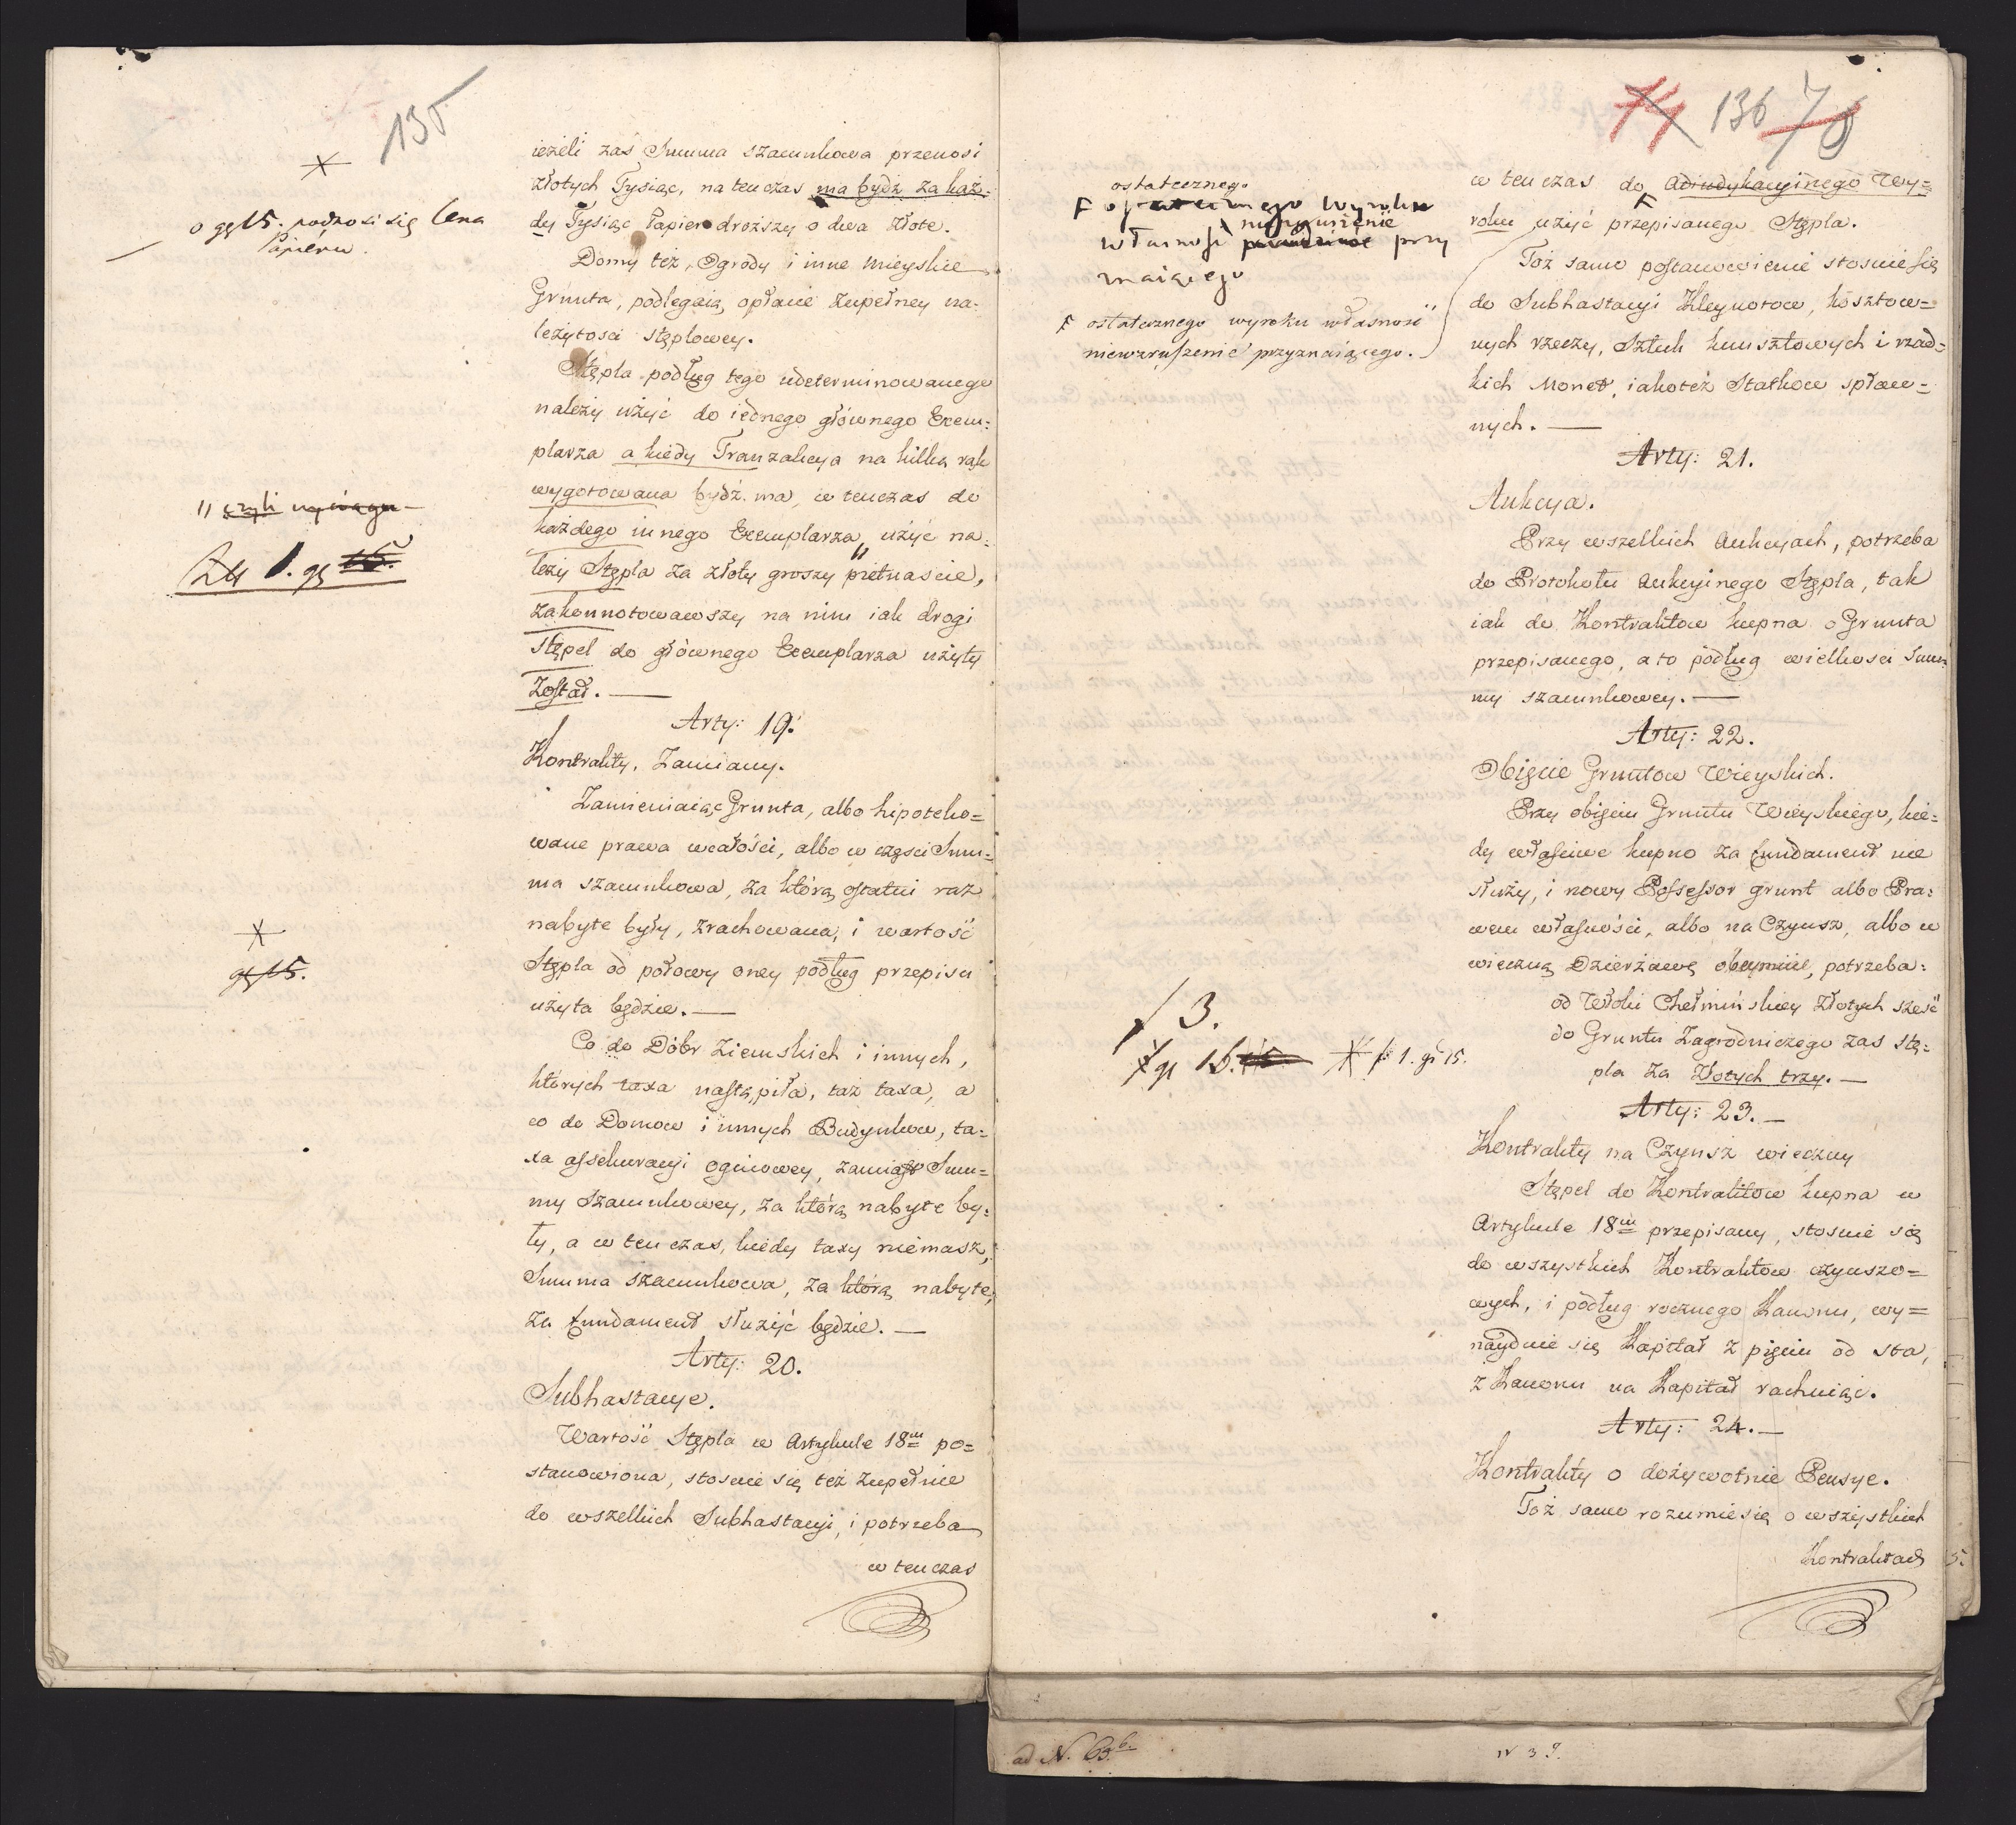 135
ieżeli zaś Summa szacunkowa przenosi
złotych Tysiąc, na ten czas ma bydź za każ-
dy Tysiąc Papier droższy o dwa złote.
Domy też, Ogrody i inne Mieyskie
Grunta, podlegaią opłacie zupełney na-
leżytosci stęplowey.
Stępla podług tego udeterminowanego
należy użyć do iednego głównego Exem-
plarza a kiedy Tranzakcya na kilka rąk
wygotowana bydź ma, w tenczas do
każdego innego Exemplarza użyć na-
leży Stępla za złoty groszy piętnaście,
zakonnotowawszy na nim iak drogi
Stępel do głównego Exemplarza użyty
został. —
Arty: 19.
Kontrakty, Zamiany.
Zamieniaiąc Grunta, albo hipoteko=
wane prawa w całości, albo w częsci Sum=
ma szacunkowa, za którą ostatni raz
nabyte były, zrachowana, i wartość
Stępla od połowy oney podług przepisu
użyta będzie. —
Co do Dóbr Ziemskich i innych,
których taxa nastąpiła, taż taxa, a
co do Domow i innych Budynkow, ta=
xa assekuracyi ogniowey, zamiast Sum=
my Szacunkowey, za którą nabyte by=
ły, a w ten czas, kiedy taxy niemasz,
Summa szacunkowa, za którą nabyte,
za fundament służyć będzie. —
Arty: 20.
Subhastacye.
Wartość Stępla w Artykule 18m po=
stanowiona, stosuie się też zupełnie
do wszelkich Subhastacyi, i potrzeba
w ten czas
*
o gę 15. podnosi się Cena
Papieru.
" czyli wyciągu —
Zły 1. gę 15.
*
gę 15.
74 136 70
w ten czas do Adiudykacyinego Wy=
roku użyć przepisanego Stępla.
Toż samo postanowienie stosuie się
do Subhastacyi Kleynotow, kosztow=
nych rzeczy, Sztuk kunsztowych i rzad=
kich Monet, iakoteż Statkow spław=
nych. —
Arty: 21.
Aukcya.
Przy wszelkich Aukcyach, potrzeba
do Protokołu Aukcyinego Stępla, tak
iak do Kontraktow kupna o Grunta
przepisanego, a to podług wielkosci Sum=
my szacunkowey. —
Arty: 22.
Obięcie Gruntow Wieyskich.
Przy obięciu Gruntu Wieyskiego, kie=
dy właściwe kupno za fundament nie
służy, i nowy Possessor grunt albo Pra=
wem własności, albo na Czynsz, albo w
wieczną Dzierżawę obeymuie, potrzeba:
od Włoki Chełmińskiey złotych sześć
do Gruntu Zagrodniczego zas stę=
pla za Złotych trzy. —
Arty: 23. —
Kontrakty na Czynsz wieczny
Stępel do Kontraktow kupna w
Artykule 18m przepisany, stosuie się
do wszystkich Kontraktow czynszo=
wych, i podług rocznego Kanonu, wy=
naydzie się Kapitał z pięciu od sta,
z Kanonu na Kapitał rachuiąc.
Arty: 24. —
Kontrakty o dożywotnie Pensye.
Toż samo rozumie się o wszystkich
Kontraktach
ostatecznego
F wyroku
niewzruszenie
własność przy
znaiącego
F ostatecznego wyroku własność
niewzruszenie przyznaiącego.
f 3.
gr 15.
* f 1. gr 15.
ad N. 63b.
N 39.